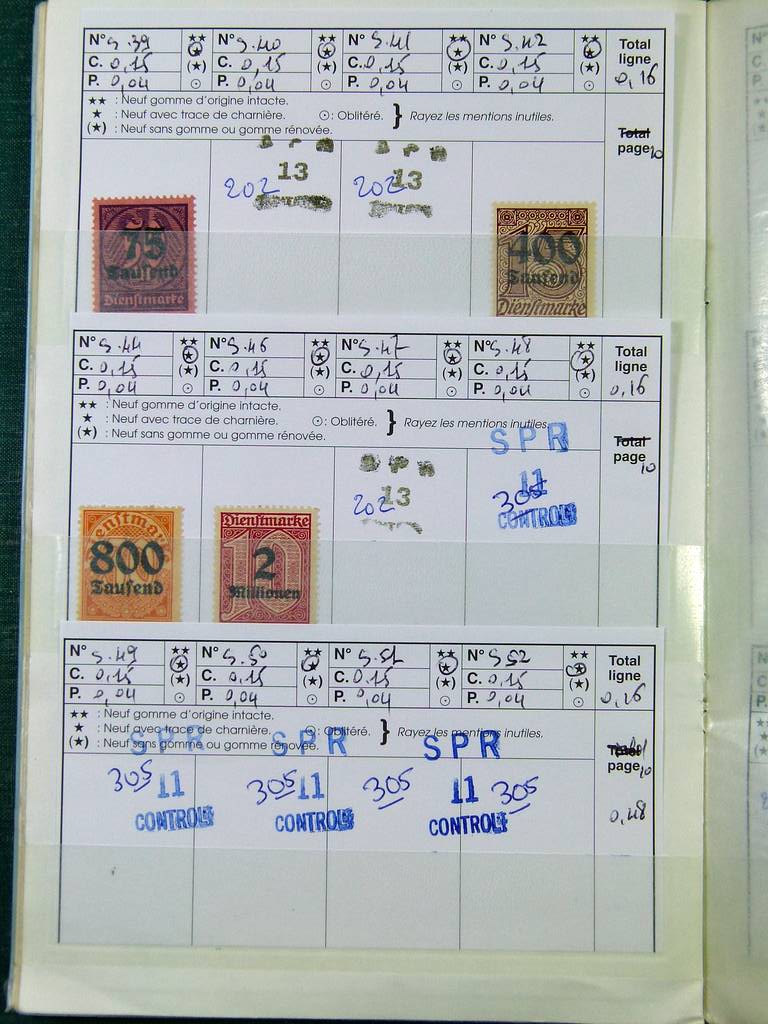 N° S.39 ★★ ★ (★) ⊙ N° S.40 ★★ ★ (★) ⊙ N° S.41 ★★ ★ (★) ⊙ N° S.42 ★★ ★ (★) ⊙ Total
C. 0,15 C. 0,15 C. 0,15 C. 0,15 ligne
P. 0,04 P. 0,04 P. 0,04 P. 0,04 0,16
★★ : Neuf gomme d'origine intacte.
★ : Neuf avec trace de charnière. ⊙ : Oblitéré. } Rayez les mentions inutiles.
(★) : Neuf sans gomme ou gomme rénovée.
Total
page 10
SPR SPR
13 13
202 202
75
Tausend
Dienstmarke
400
Tausend
Dienstmarke
N° S.44 ★★ ★ (★) ⊙ N° S.46 ★★ ★ (★) ⊙ N° S.47 ★★ ★ (★) ⊙ N° S.48 ★★ ★ (★) ⊙ Total
C. 0,15 C. 0,15 C. 0,15 C. 0,15 ligne
P. 0,04 P. 0,04 P. 0,04 P. 0,04 0,16
★★ : Neuf gomme d'origine intacte.
★ : Neuf avec trace de charnière. ⊙ : Oblitéré. } Rayez les mentions inutiles.
(★) : Neuf sans gomme ou gomme rénovée.
Total
page 10
SPR
13
202
SPR
11
305
CONTROLE
800
Tausend
Dienstmarke
2
Millionen
N° S.49 ★★ ★ (★) ⊙ N° S.50 ★★ ★ (★) ⊙ N° S.51 ★★ ★ (★) ⊙ N° S.52 ★★ ★ (★) ⊙ Total
C. 0,15 C. 0,15 C. 0,15 C. 0,15 ligne
P. 0,04 P. 0,04 P. 0,04 P. 0,04 0,16
★★ : Neuf gomme d'origine intacte.
★ : Neuf avec trace de charnière. ⊙ : Oblitéré. } Rayez les mentions inutiles.
(★) : Neuf sans gomme ou gomme rénovée.
Total
page 10
0,48
SPR SPR SPR
305 11 305 11 305 11 305
CONTROLE CONTROLE CONTROLE